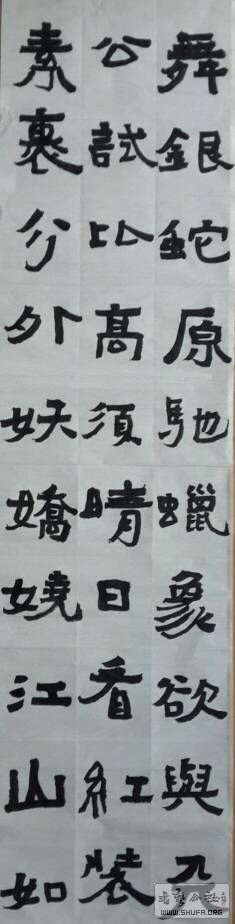 舞銀蛇原馳蠟象欲與天
公試比高須晴日看紅裝
素裹分外妖嬌嬈江山如
书法公社
WWW.SHUFA.ORG